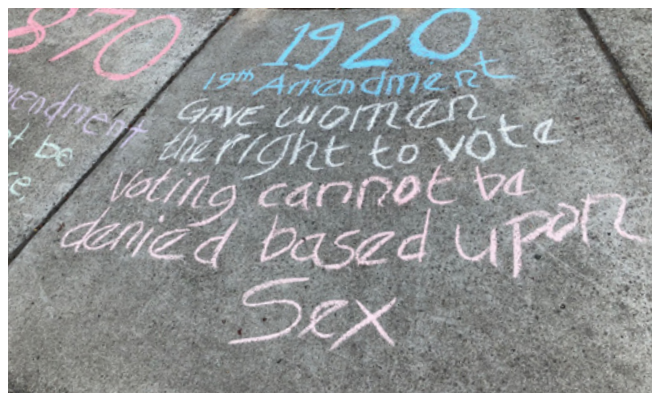 870
mendment
t be
e
1920
19th Amendment
GAVE women
the right to vote
Voting cannot be
denied based upon
Sex